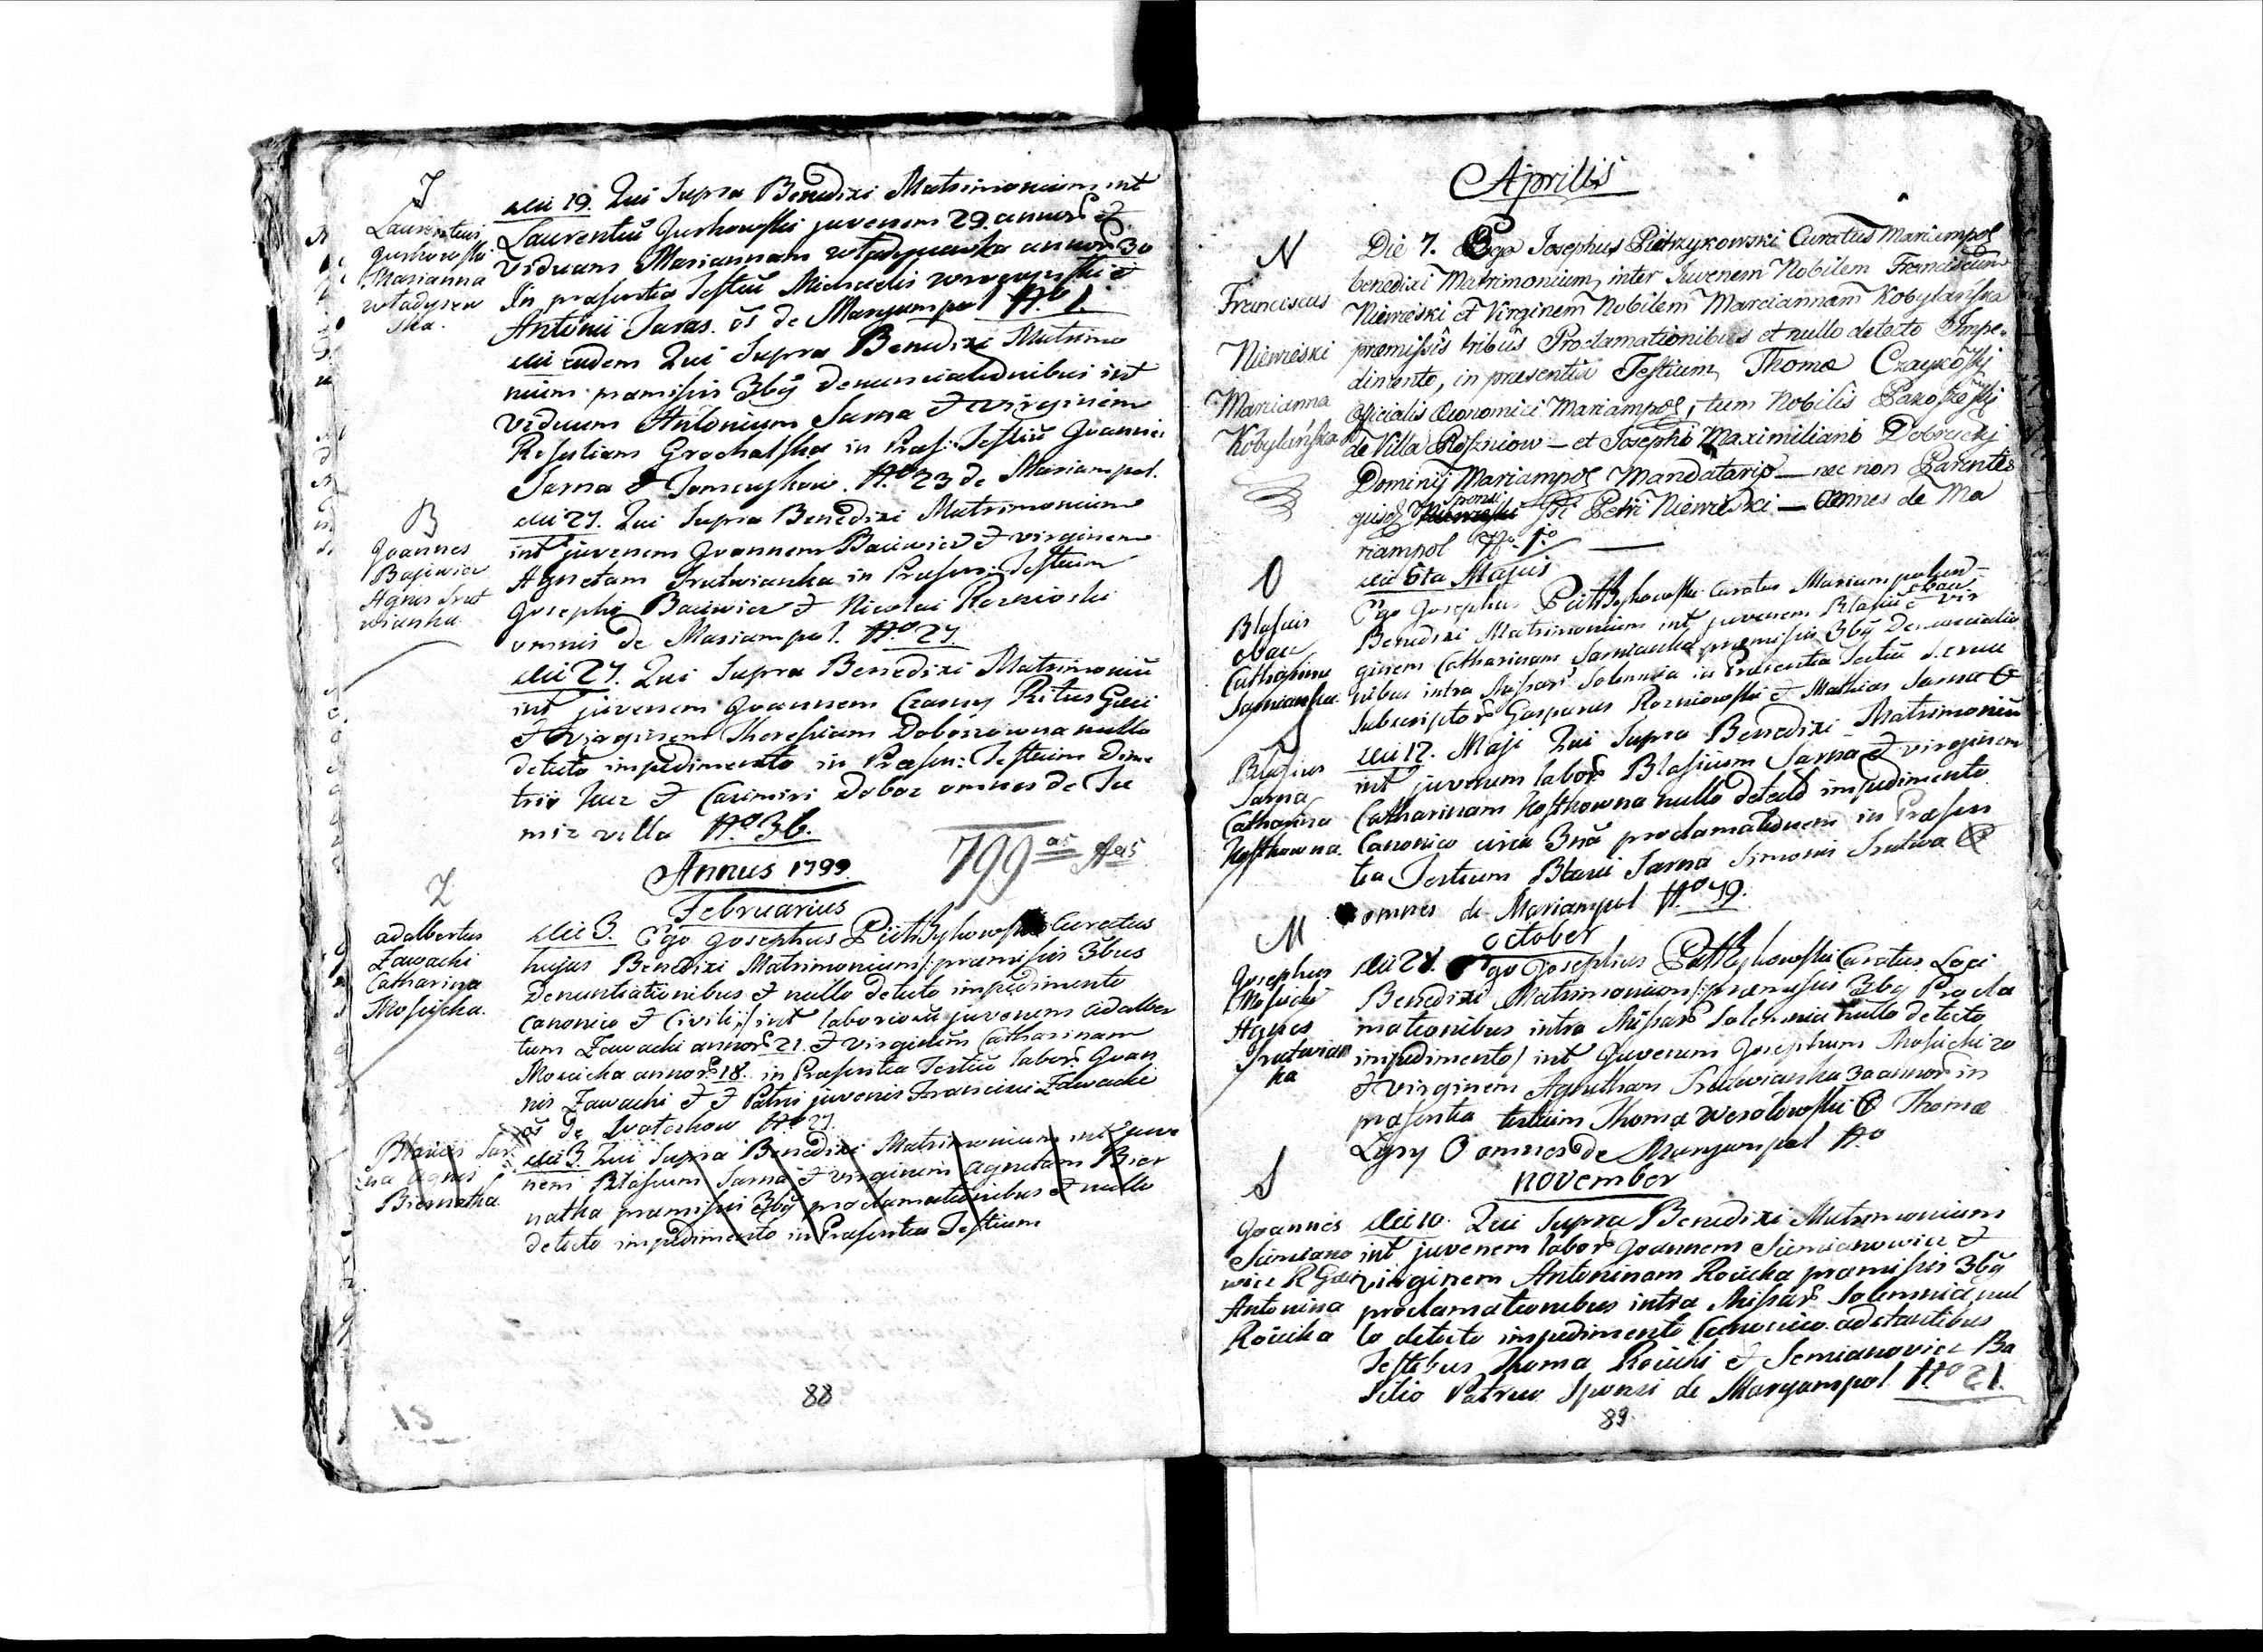 J
Laurentius
Gurkowski
Marianna
Władysew
ska.
Die 19. Qui Supra Benedixi Matrimonium int
Laurentiū Gurkowski juvenem 29. annor et
Viduam Mariannam annor 30
In præsentia Testiū Michaelis et
Antonii Taras. os de Maryampol No. 1.
Die eadem Qui Supra Benedixi Matrimo
nium præmissis 3bq Denunciationibus int
Viduum Antonium Sarna et Virginem
Grochalska in Præs: Testiū Joannis
Sarna et No 23 de Mariampol.
B
Joannes
Bajiwicz
Agnes Srut
wianka.
Die 27. Qui Supra Benedixi Matrimonium
int juvenem Joannem Baciwicz et virginem
Agnetam Srutwianka in Præsen: Testium
Josephi Baciwicz et Nicolai Roznioski
omnis de Mariampol. No 27.
Die 27. Qui Supra Benedixi Matrimoniū
int juvenem Joannem Czarny Ritus Græci
et Virginem Theresiam Doboszowna nullo
detecto impedimento in Præsen: Testium Dime
trii Huz et Casimiri Doboz omnes de Je
mie villa No 36.
Annus 1799.
799
Februarius
Z
Adalbertus
Zawacki
Catharina
Mosiıcka.
Die 3. Ego Josephus Curatus
hujus Benedixi Matrimonium /: præmissis 3bus
Denuntiationibus et nullo detecto impedimento
Canonico et Civili :/ int laboriosū juvenem Adalber
tum Zawacki annor 21. et Virginem Catharinam
Mosicka annor 18. in Præsentia Testiū labor. Joan
nis Zawacki et et Patris juvenis Francisci Zawacki
os de No 27.
Blasius Sar
na Agnes
Biernatka
Die 3. Qui Supra Benedixi Matrimonium int juve
nem Blasium Sarna et virginem Agnetam Bier
natka præmissis 3bq proclamationibus et nullo
detecto impedimento in Præsentia Testium
88
Aprilis
N
Franciscus
Niewieski
Marcianna
Kobylańska
Die 7. Ego Josephus Pietrzykowski Curatus Mariampol
benedixi Matrimonium, inter Juvenem Nobilem Franciscum
Niewieski et Virginem Nobilem Marciannam Kobylańska
præmissis tribus Proclamationibus et nullo detecto Impe-
dimento, in præsentia Testium, Thoma Czaykoski
Officialis Œconomici Mariampol, tum Nobilis
de Villa Rożniow — et Josephi Maximiliani Dobrzecki
Dominij Mariampol Mandatario — nec non Parentis
Sponsi
Petri Niewieski — Omnes de Ma
riampol No. 1o
O
Blasius
Obau
Catharina
Sarnianka.
Die 6ta Majus
Ego Josephus Curatus Mariampolen
Obau
Benedixi Matrimonium int juvenem Blasiū et vir
ginem Catharinam Sarnianka præmissis 3bq Denunciatio
nibus intra Missar Solennia in Præsentia Testiū S. cruce
Subscriptor Gasparus Rozniowski et Mathias Sarna
S
Blasius
Sarna
Catharina
Kostkowna.
Die 12. Maji Qui Supra Benedixi Matrimoniū
int juvenem labor Blasium Sarna et virginem
Catharinam Kostkowna nullo detecto impedimento
Canonico circa 3nā proclamationem in Præsen
tia Testium Blasii Sarna Simonis Srutwa
omnes de Mariampol No 49.
October
M
Josephus
Mosicki
Agnes
Srutwian
ka
Die 28. Ego Josephus Curatus Loci
Benedixi Matrimonium /: præmissis 3bq Procla
mationibus intra Missar Solennia nullo detecto
impedimento / int Juvenem Josephum Mosicki 20
et virginem Agnetham Srutwianka annor in
præsentia testium Thoma Wesolowski et Thoma
Lysy omnes de Maryampol No
November
S
Joannes
Simiano
wicz R Græci
Antonina
Roiicka
Die 10. Qui Supra Benedixi Matrimonium
int juvenem labor Joannem Simianowicz et
virginem Antoninam Roiicka præmissis 3bq
proclamationibus intra Missar Solennia nul
lo detecto impedimento Canonico adstantibus
Testibus Thoma Roiicki et Semianovicz Ba
silio Patruo Sponsi de Maryampol No 21.
89